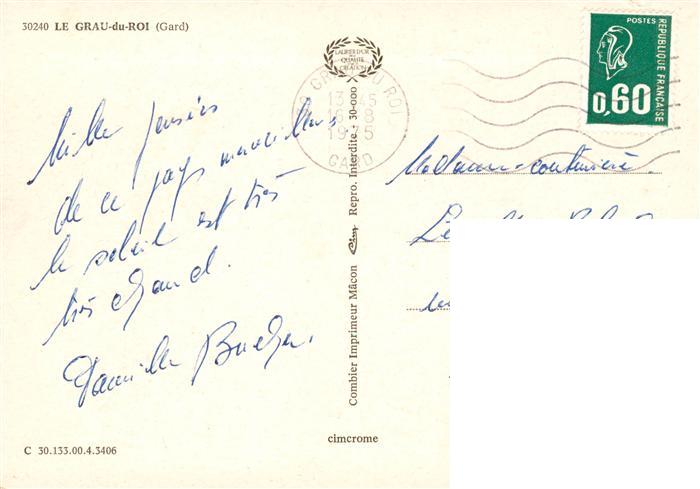 30240 LE GRAU-du-ROI (Gard)
LAURIER D'OR
QUALITÉ
CRÉATION
POSTES
RÉPUBLIQUE FRANÇAISE
0,60
GRAU DU ROI
13 45
16-8
1975
GARD
Mille pensées
de ce pays merveilleux,
le soleil est très
très chaud.
Famille Bucher.
Combier Imprimeur Mâcon Cim Repro. Interdite. 30-000
Madame
cimcrome
C 30.133.00.4.3406